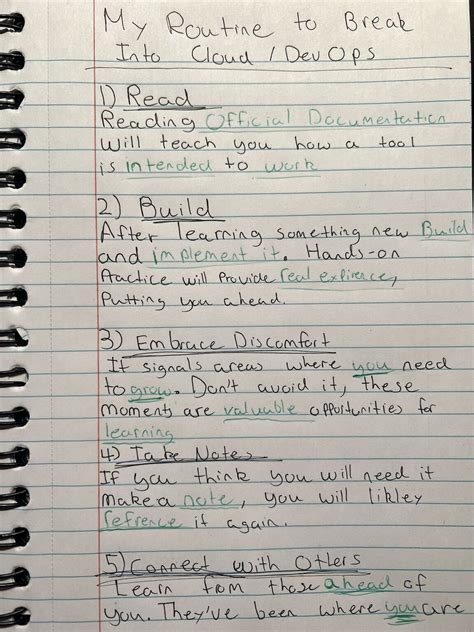 My Routine to Break
Into Cloud / DevOps
1) Read
Reading Official Documentation
Will teach you how a tool
is intended to work
2) Build
After learning something new Build
and implement it. Hands-on
Practice will Provide real expirence,
Putting you ahead.
3) Embrace Discomfort
It signals areas where you need
to grow. Don't avoid it, these
moments are valuable opportunities for
learning
4) Take Notes
If you think you will need it
make a note, you will likley
refrence it again.
5) Connect with Others
Learn from those ahead of
you. They've been where you are